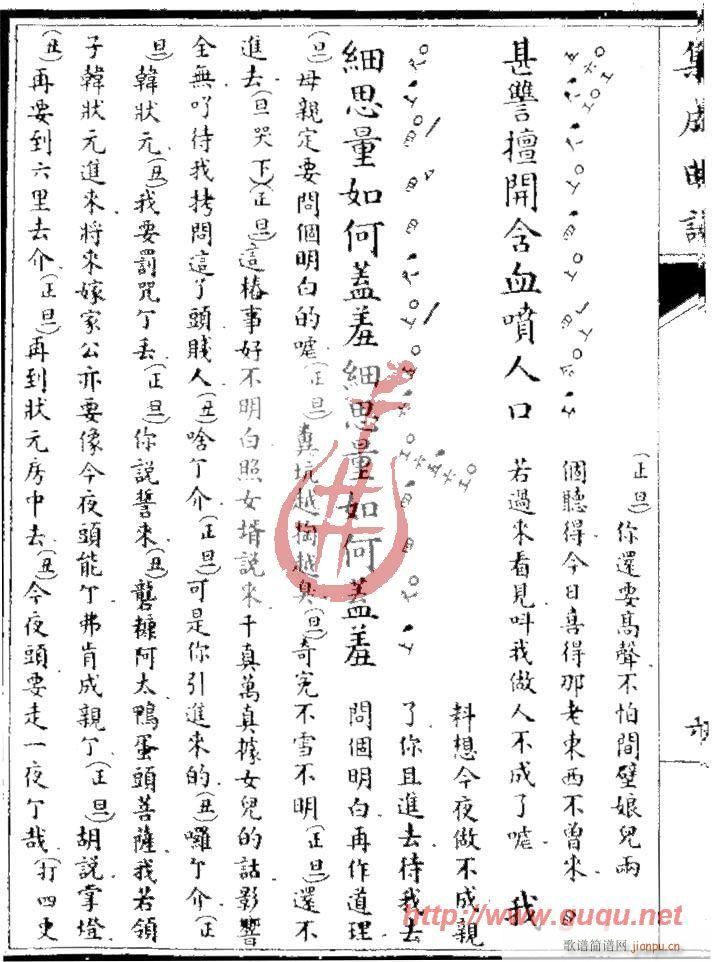 集成曲譜
(正旦)你還要高聲不怕間壁娘兒兩
個聽得今日喜得那老東西不曾來
甚讐擅開含血噴人口
若過來看見呌我做人不成了嘘
我
料想今夜做不成親
了你且進去待我去
細思量如何蓋羞細思量如何蓋羞
問個明白再作道理
(旦)母親定要問個明白的嘘(正旦)糞坑越掏越臭(旦)奇冤不雪不明(正旦)還不
進去(旦哭下)(正旦)這樁事好不明白照女壻説來千真萬真據女兒的話影響
全無吖待我拷問這丫頭賤人(丑)啥丫介(正旦)可是你引進來的(丑)囉丫介(正
旦)韓狀元(丑)我要罰咒丫丢(正旦)你説誓來(丑)礱糠阿太鴨蛋頭菩薩我若領
子韓狀元進來將來嫁家公亦要像今夜頭能丫弗肯成親丫(正旦)胡説掌燈
(丑)再要到六里去介(正旦)再到狀元房中去(丑)今夜頭要走一夜丫哉(打四更
http://www.guqu.net
歌谱简谱网
jianpu.cn